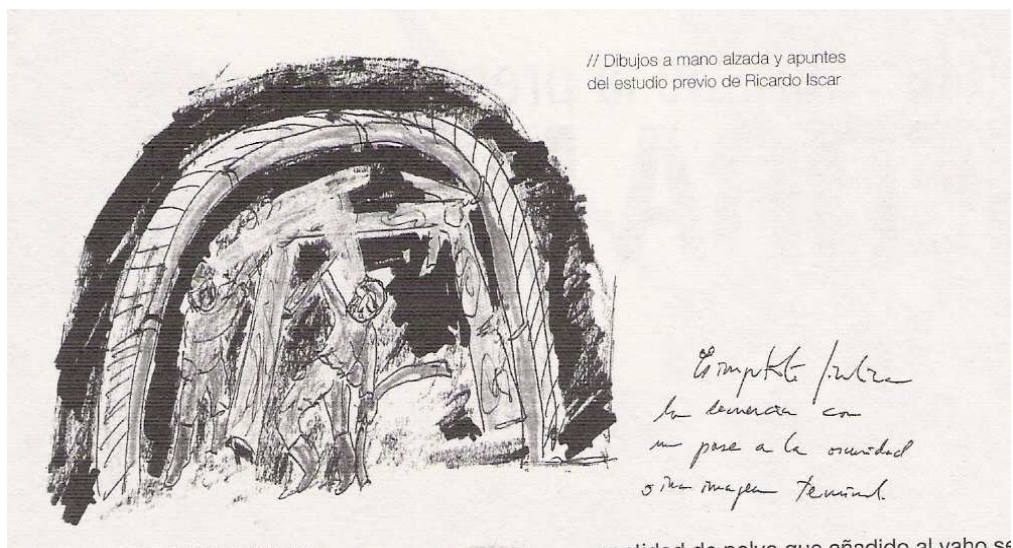 // Dibujos a mano alzada y apuntes
del estudio previo de Ricardo Iscar
la secuencia con
un pase a la oscuridad
o una imagen terminal.
cantidad de polvo que añadido al vaho se